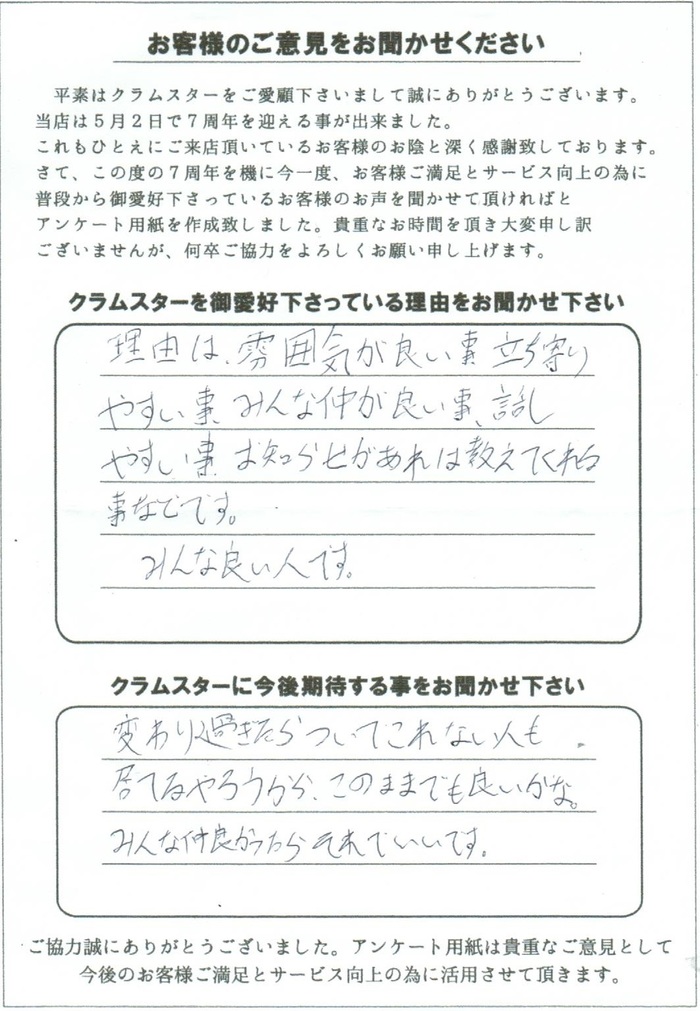 お客様のご意見をお聞かせください
平素はクラムスターをご愛顧下さいまして誠にありがとうございます。
当店は５月２日で７周年を迎える事が出来ました。
これもひとえにご来店頂いているお客様のお陰と深く感謝致しております。
さて、この度の７周年を機に今一度、お客様ご満足とサービス向上の為に
普段から御愛好下さっているお客様のお声を聞かせて頂ければと
アンケート用紙を作成致しました。貴重なお時間を頂き大変申し訳
ございませんが、何卒ご協力をよろしくお願い申し上げます。
クラムスターを御愛好下さっている理由をお聞かせ下さい
理由は、雰囲気が良い事 立ち寄り
やすい事、みんな仲が良い事、話し
やすい事、お知らせがあれは教えてくれる
事などです。
みんな良い人です。
クラムスターに今後期待する事をお聞かせ下さい
変わり過ぎたらついてこれない人も
居てるやろうから、このままでも良いかな。
みんな仲良かったらそれでいいです。
ご協力誠にありがとうございました。アンケート用紙は貴重なご意見として
今後のお客様ご満足とサービス向上の為に活用させて頂きます。